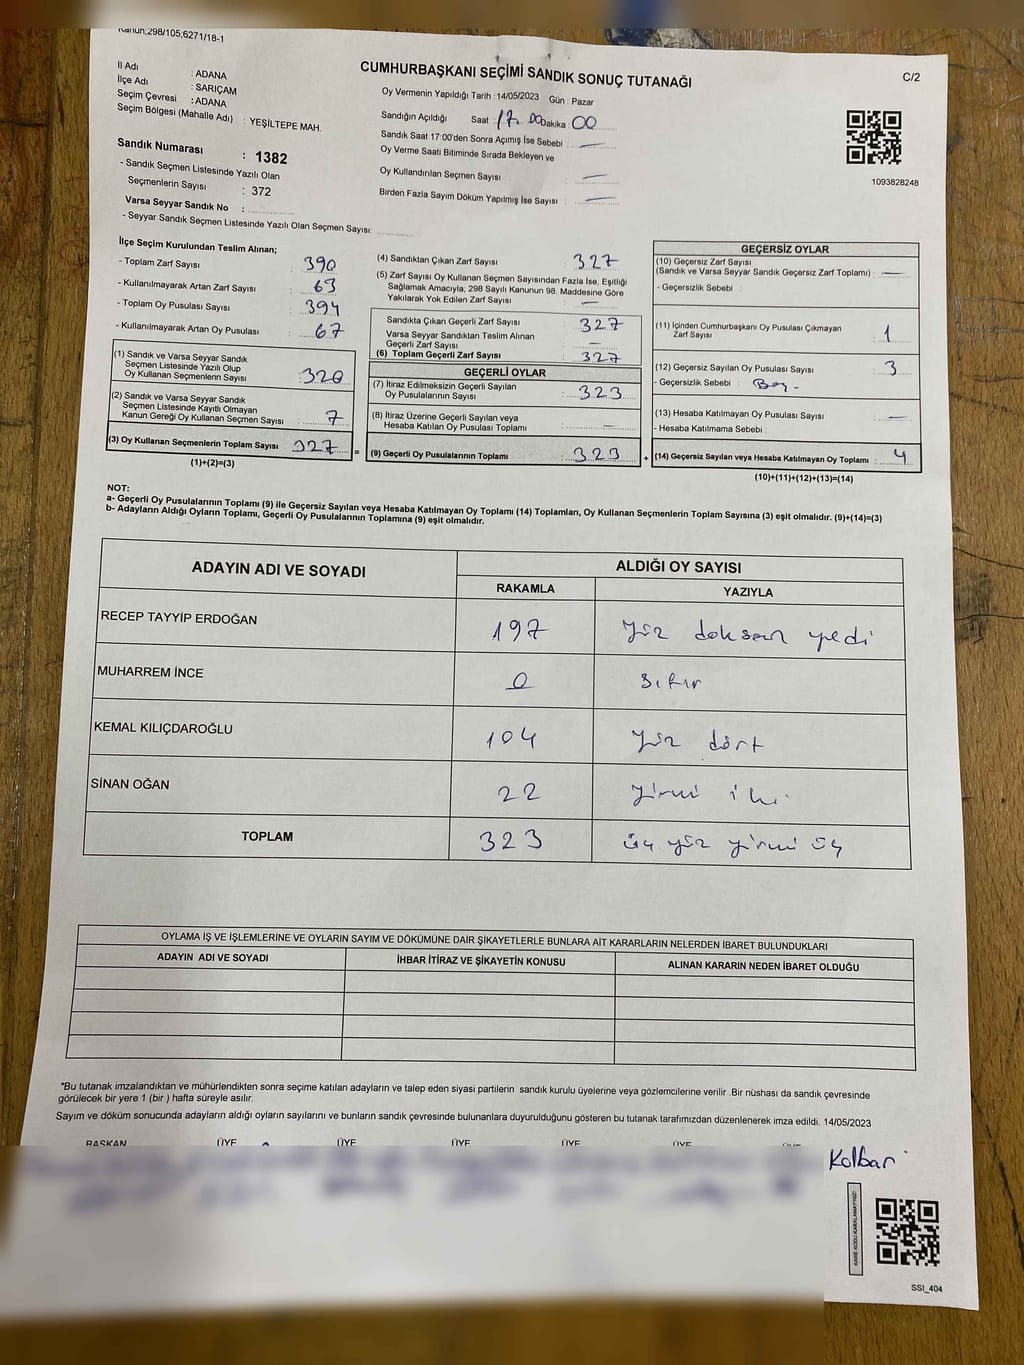 Kanun;298/105;6271/18-1
CUMHURBAŞKANI SEÇİMİ SANDIK SONUÇ TUTANAĞI
C/2
İl Adı : ADANA
İlçe Adı : SARIÇAM
Seçim Çevresi : ADANA
Seçim Bölgesi (Mahalle Adı) : YEŞİLTEPE MAH.
Sandık Numarası : 1382
- Sandık Seçmen Listesinde Yazılı Olan
Seçmenlerin Sayısı : 372
Varsa Seyyar Sandık No :
- Seyyar Sandık Seçmen Listesinde Yazılı Olan Seçmen Sayısı:
Oy Vermenin Yapıldığı Tarih : 14/05/2023 Gün : Pazar
Sandığın Açıldığı Saat : 17.00 Dakika : 00
Sandık Saat 17:00'den Sonra Açımış İse Sebebi : —
Oy Verme Saati Bitiminde Sırada Bekleyen ve
Oy Kullandırılan Seçmen Sayısı : —
Birden Fazla Sayım Döküm Yapılmış İse Sayısı : —
1093828248
İlçe Seçim Kurulundan Teslim Alınan;
- Toplam Zarf Sayısı : 390
- Kullanılmayarak Artan Zarf Sayısı : 63
- Toplam Oy Pusulası Sayısı : 394
- Kullanılmayarak Artan Oy Pusulası : 67
(1) Sandık ve Varsa Seyyar Sandık
Seçmen Listesinde Yazılı Olup
Oy Kullanan Seçmenlerin Sayısı : 320
(2) Sandık ve Varsa Seyyar Sandık
Seçmen Listesinde Kayıtlı Olmayan
Kanun Gereği Oy Kullanan Seçmen Sayısı : 7
(3) Oy Kullanan Seçmenlerin Toplam Sayısı : 327 =
(1)+(2)=(3)
(4) Sandıktan Çıkan Zarf Sayısı : 327
(5) Zarf Sayısı Oy Kullanan Seçmen Sayısından Fazla İse, Eşitliği
Sağlamak Amacıyla; 298 Sayılı Kanunun 98. Maddesine Göre
Yakılarak Yok Edilen Zarf Sayısı : —
Sandıkta Çıkan Geçerli Zarf Sayısı : 327
Varsa Seyyar Sandıktan Teslim Alınan
Geçerli Zarf Sayısı : —
(6) Toplam Geçerli Zarf Sayısı : 327
GEÇERLİ OYLAR
(7) İtiraz Edilmeksizin Geçerli Sayılan
Oy Pusulalarının Sayısı : 323
(8) İtiraz Üzerine Geçerli Sayılan veya
Hesaba Katılan Oy Pusulası Toplamı : —
(9) Geçerli Oy Pusulalarının Toplamı : 323 +
GEÇERSİZ OYLAR
(10) Geçersiz Zarf Sayısı
(Sandık ve Varsa Seyyar Sandık Geçersiz Zarf Toplamı) : —
- Geçersizlik Sebebi :
(11) İçinden Cumhurbaşkanı Oy Pusulası Çıkmayan
Zarf Sayısı : 1
(12) Geçersiz Sayılan Oy Pusulası Sayısı : 3
- Geçersizlik Sebebi :
(13) Hesaba Katılmayan Oy Pusulası Sayısı : —
- Hesaba Katılmama Sebebi :
(14) Geçersiz Sayılan veya Hesaba Katılmayan Oy Toplamı : 4
(10)+(11)+(12)+(13)=(14)
NOT:
a- Geçerli Oy Pusulalarının Toplamı (9) ile Geçersiz Sayılan veya Hesaba Katılmayan Oy Toplamı (14) Toplamları, Oy Kullanan Seçmenlerin Toplam Sayısına (3) eşit olmalıdır. (9)+(14)=(3)
b- Adayların Aldığı Oyların Toplamı, Geçerli Oy Pusulalarının Toplamına (9) eşit olmalıdır.
ADAYIN ADI VE SOYADI ALDIĞI OY SAYISI
RAKAMLA YAZIYLA
RECEP TAYYİP ERDOĞAN 197 yüz doksan yedi
MUHARREM İNCE 0 sıfır
KEMAL KILIÇDAROĞLU 104 yüz dört
SİNAN OĞAN 22 yirmi iki
TOPLAM 323 üç yüz yirmi üç
OYLAMA İŞ VE İŞLEMLERİNE VE OYLARIN SAYIM VE DÖKÜMÜNE DAİR ŞİKAYETLERLE BUNLARA AİT KARARLARIN NELERDEN İBARET BULUNDUKLARI
ADAYIN ADI VE SOYADI İHBAR İTİRAZ VE ŞİKAYETİN KONUSU ALINAN KARARIN NEDEN İBARET OLDUĞU
"Bu tutanak imzalandıktan ve mühürlendikten sonra seçime katılan adayların ve talep eden siyasi partilerin sandık kurulu üyelerine veya gözlemcilerine verilir .Bir nüshası da sandık çevresinde
görülecek bir yere 1 (bir ) hafta süreyle asılır.
Sayım ve döküm sonucunda adayların aldığı oyların sayılarını ve bunların sandık çevresinde bulunanlara duyurulduğunu gösteren bu tutanak tarafımızdan düzenlenerek imza edildi. 14/05/2023
BAŞKAN ÜYE ÜYE ÜYE ÜYE ÜYE ÜYE
Kolbari
KARE KODU KARALAMAYINIZ!
SSI_404